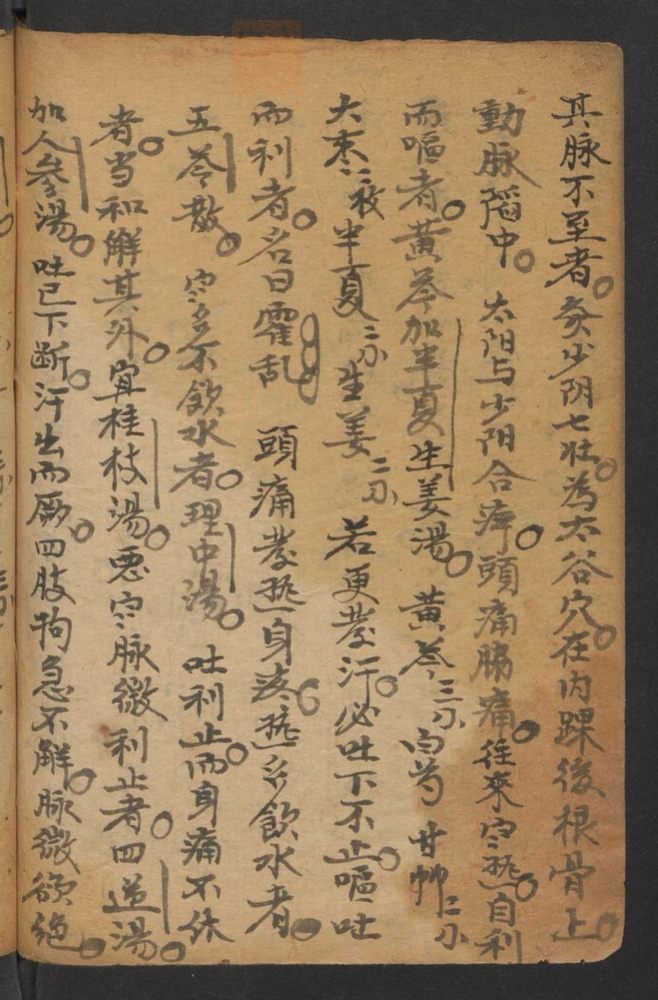 其脉不至者。灸少阴七壮。為太谷穴。在内踝後根骨上。
動脉陷中。太阳与少阳合病。頭痛腸痛。往來寒热。自利
而嘔者。黄芩加半夏生姜湯。黄芩三分 白芍 甘艸二分
大枣三枚 半夏二分 生姜二分 若更發汗。必吐下不止。嘔吐
而利者。名曰霍乱 頭痛發热身疼热多飲水者。
五苓散。寒多不飲水者。理中湯。吐利止而身痛不休
者。当和解其外。宜桂枝湯。悪寒脉微利止者。四逆湯。
加人參湯。吐已下断。汗出而厥。四肢拘急不解。脉微欲絶。